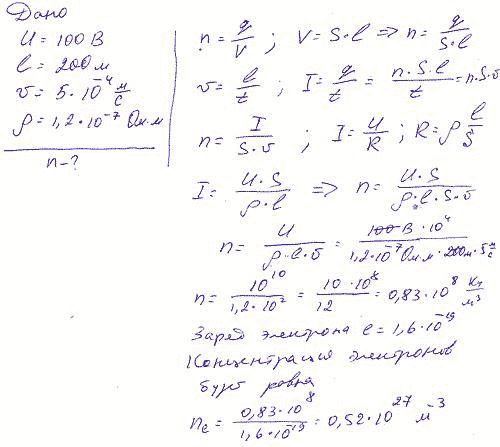 Дано
U = 100 В
l = 200 м
v = 5 · 10⁻⁴ м/с
ρ = 1,2 · 10⁻⁷ Ом·м
n - ?
n = q/V ; V = S·l => n = q/(S·l)
v = l/t ; I = q/t = n·S·l/t = n·S·v
n = I/(S·v) ; I = U/R ; R = ρ l/S
I = U·S/(ρ·l) => n = U·S/(ρ·l·S·v)
n = U/(ρ·l·v) = 100 В · 10⁴/(1,2·10⁻⁷ Ом·м · 200 м · 5 м/с)
n = 10¹⁰/(1,2·10²) = 10·10⁸/12 = 0,83·10⁸ Кл/м³
Заряд электрона e = 1,6·10⁻¹⁹
Концентрация электронов
будт равна
nₑ = 0,83·10⁸/(1,6·10⁻¹⁹) = 0,52·10²⁷ м⁻³